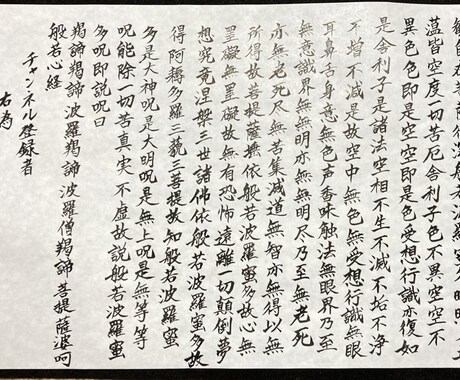 蘊皆空度一切苦厄舎利子色不異空空不
異色色即是空空即是色受想行識亦復如
是舎利子是諸法空相不生不滅不垢不浄
不増不減是故空中無色無受想行識無眼
耳鼻舌身意無色声香味触法無眼界乃至
無意識界無無明亦無無明尽乃至無老死
亦無老死尽無苦集滅道無智亦無得以無
所得故菩提薩埵依般若波羅蜜多故心無
罣礙無罣礙故無有恐怖遠離一切顛倒夢
想究竟涅槃三世諸佛依般若波羅蜜多故
得阿耨多羅三藐三菩提故知般若波羅蜜
多是大神呪是大明呪是無上呪是無等等
呪能除一切苦真実不虚故説般若波羅蜜
多呪即説呪曰
羯諦羯諦 波羅羯諦 波羅僧羯諦 菩提薩婆呵
般若心経
チャンネル登録者
右為